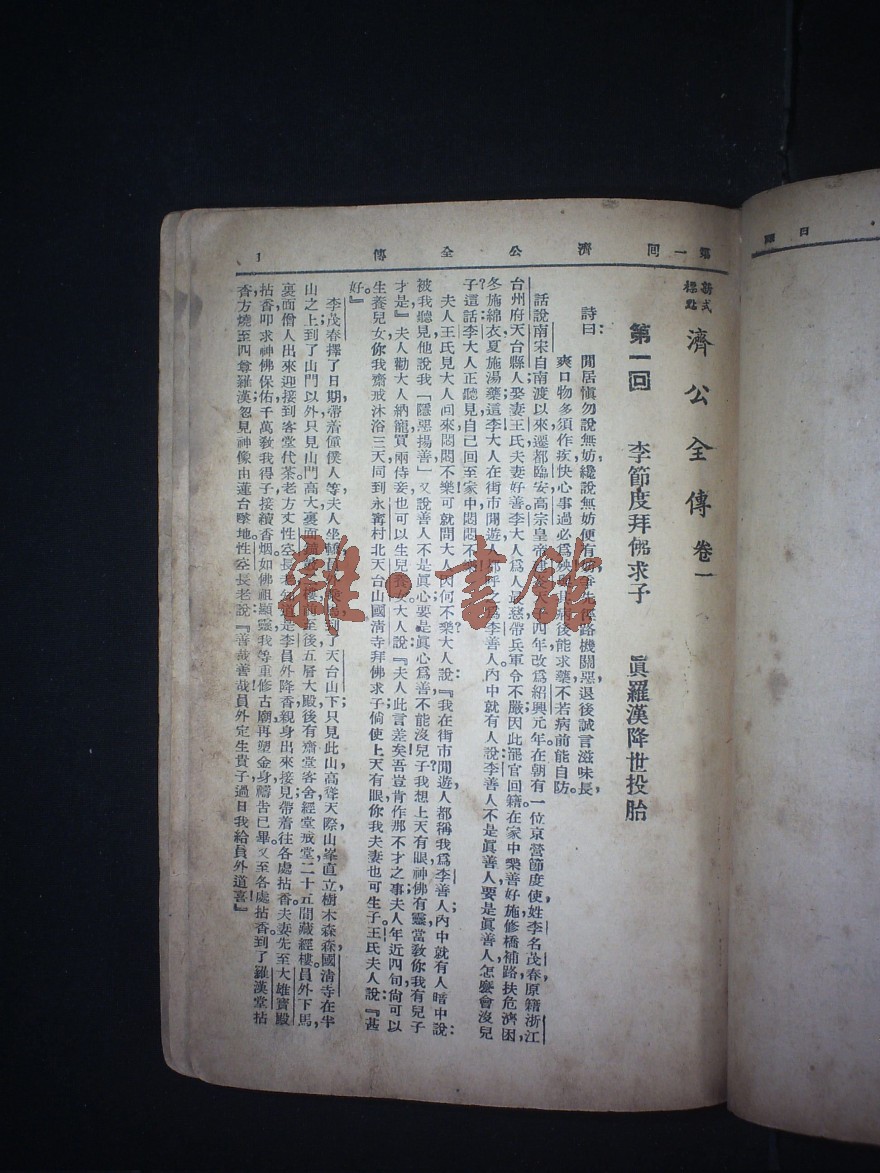 第一回 濟公全傳 1
目錄
新式標點 濟公全傳 卷一
第一回 李節度拜佛求子 眞羅漢降世投胎
詩曰：閒居愼勿說無妨纔說無妨便有 路機關惡退後誠言滋味長
爽口物多須作疾快心事過必爲 病後能求藥不若病前能自防。
話說南宋自南渡以來，遷都臨安，高宗皇帝建 四年，改爲紹興元年。在朝有一位京營節度使，姓李名茂春，原籍浙江
台州府天台縣人，娶妻王氏，夫妻好善。李大人爲人最慈，帶兵軍令不嚴，因此罷官回籍，在家中樂善好施，修橋補路，扶危濟困，
冬施綿衣，夏施湯藥。這李大人在街市閒遊，人都呼之爲李善人，內中就有人說李善人不是眞善人，要是眞善人，怎麼會沒兒
子？這話李大人正聽見，自己回至家中，悶悶不樂！
夫人王氏見大人回來悶悶不樂，可就問大人因何不樂？大人說：『我在街市閒遊，人都稱我爲李善人；內中就有人暗中說：
被我聽見，他說我「隱惡揚善」，又說善人不是眞心，要是眞心爲善，不能沒兒子。我想上天有眼，神佛有靈，當敎你我有兒子
才是』夫人勸大人納寵，買兩侍妾，也可以生兒養女。大人說：『夫人此言差矣，吾豈肯作那不才之事；夫人年近四旬，尙可以
生養兒女，你我齋戒沐浴三天，同到永寗村北天台山國淸寺拜佛求子，倘使上天有眼，你我夫妻也可生子。王氏夫人說：『甚
好。』
李茂春擇了日期，帶着僮僕人等，夫人坐轎，員外 到了天台山下，只見此山高聳天際，山峯直立，樹木森森，國淸寺在半
山之上。到了山門以外，只見山門高大，裏面 樓，前至後五層大殿，後有齋堂客舍，經堂戒堂，二十五間藏經樓。員外下馬，
裏面僧人出來迎接，到客堂代茶。老方丈性空長老，知道是李員外降香，親身出來接見，帶着往各處拈香。夫妻先至大雄寶殿
拈香，叩求神佛保佑，千萬敎我得子，接續香烟，如佛祖顯靈，我等重修古廟，再塑金身。禱吿已畢。又至各處拈香，到了羅漢堂拈
香，方燒至四尊羅漢，忽見神像由蓮台墜地，性空長老說：『善哉善哉！員外定生貴子，過日我給員外道喜』
雜·書館